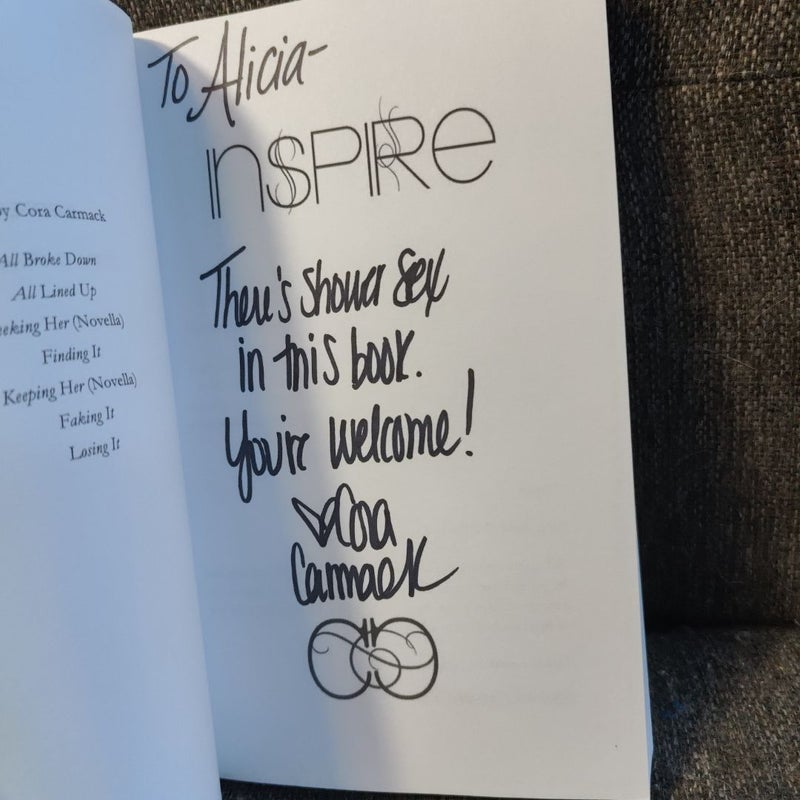 by Cora Carmack
All Broke Down
All Lined Up
eeking Her (Novella)
Finding It
Keeping Her (Novella)
Faking It
Losing It
To Alicia-
INSPIRE
There's shower sex
in this book.
You're welcome!
Cora
Carmack